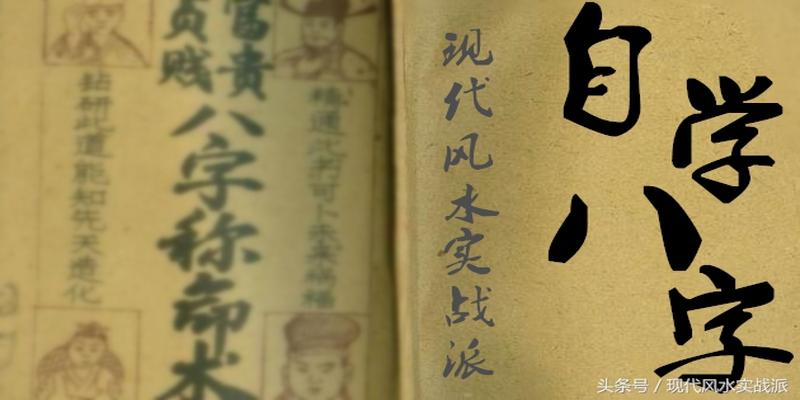 富贵
贫贱
八字称命术
精通此书可卜未来祸福
钻研此道能知先天造化
现代风水实战派
自学八字
头条号 / 现代风水实战派